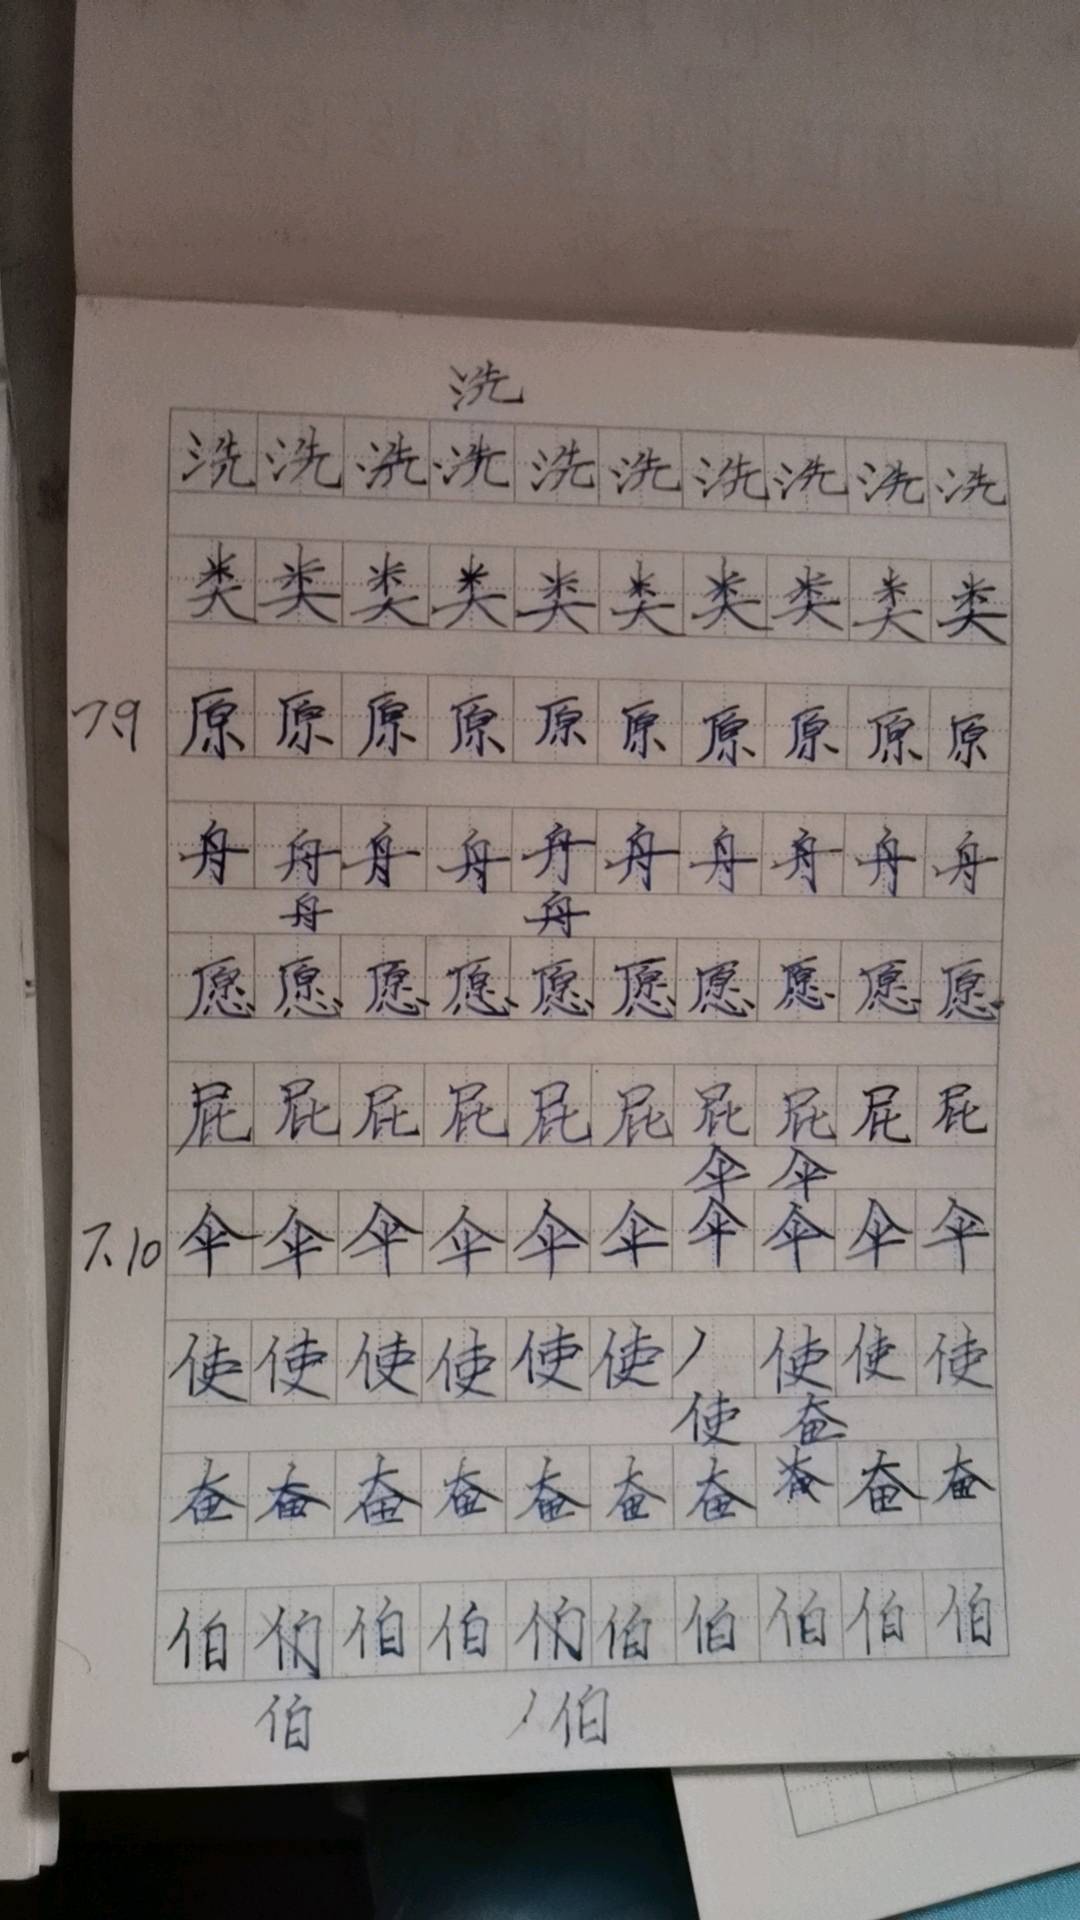 洗
洗洗洗洗洗洗洗洗洗洗
类类类类类类类类类类
7.9 原原原原原原原原原原
舟舟舟舟舟舟舟舟舟舟
舟 舟
愿愿愿愿愿愿愿愿愿愿
屁屁屁屁屁屁屁屁屁屁
伞 伞
7.10 伞伞伞伞伞伞伞伞伞伞
使使使使使使丿使使使
使 奋
奋奋奋奋奋奋奋奋奋奋
伯 伯伯 伯伯伯伯伯
伯 伯